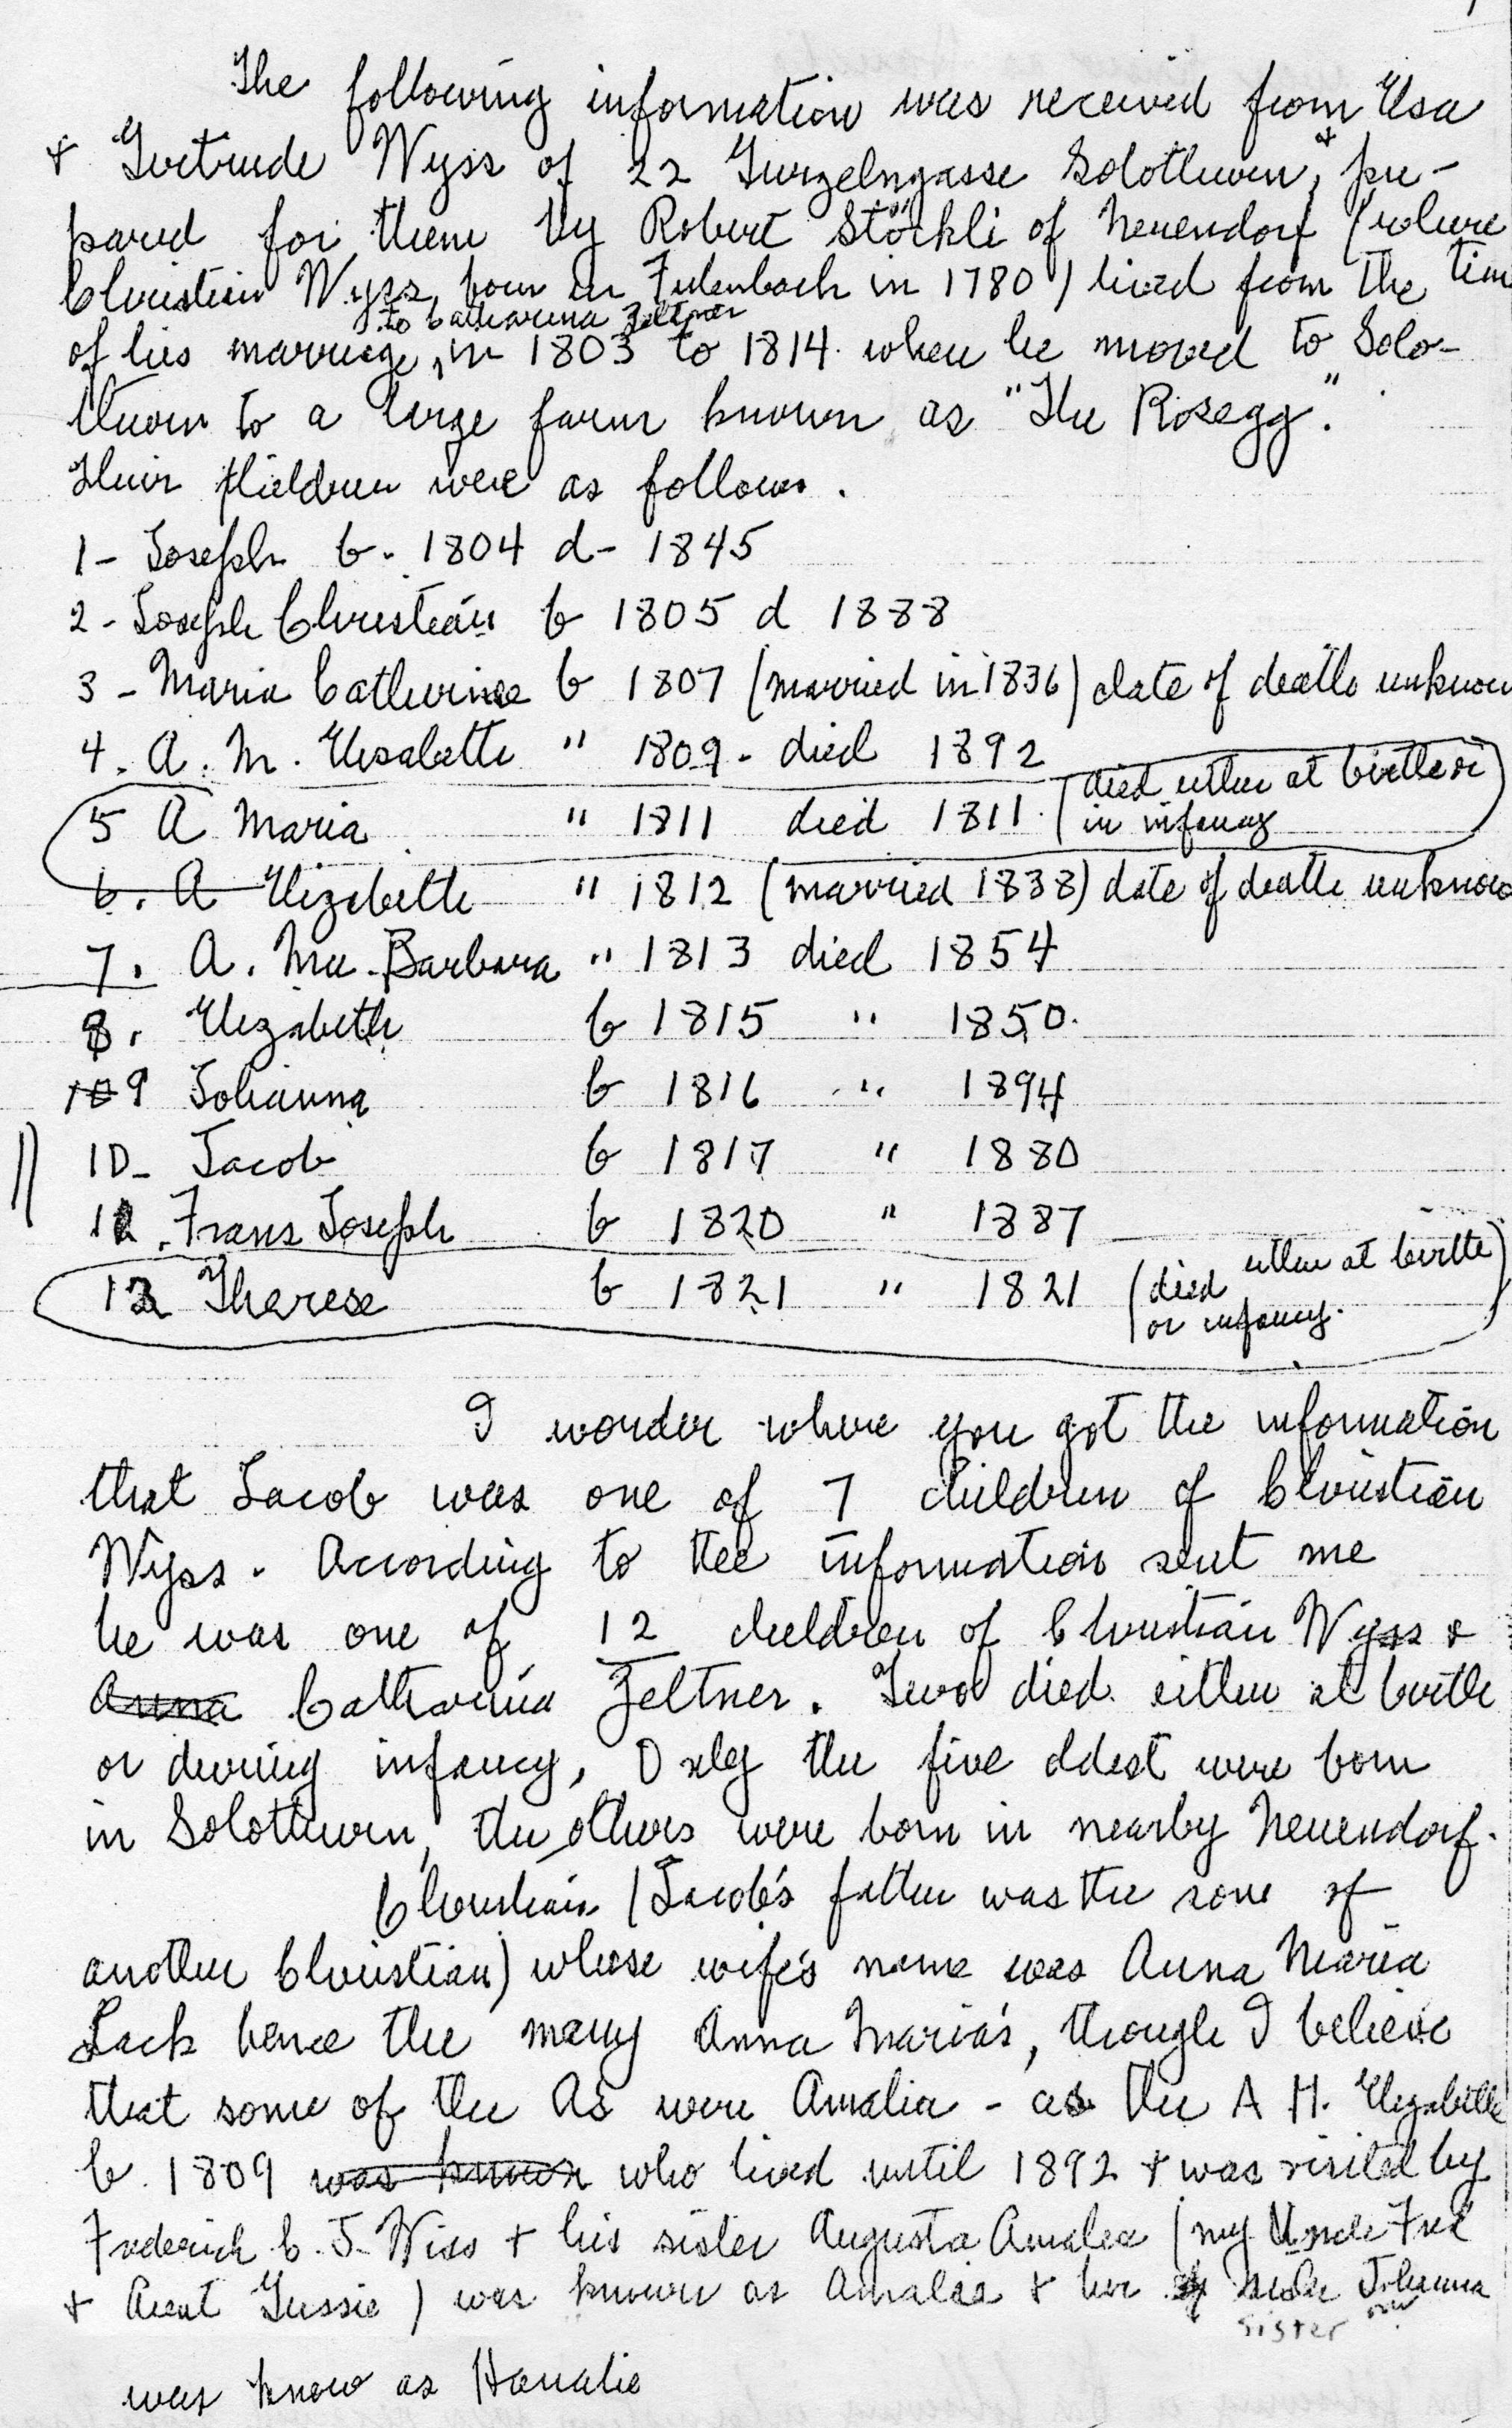 The following information was received from Elsa
+ Gertrude Wyss of 22 Gurzelngasse Solothurn, + pre-
pared for them by Robert Stöckli of Neuendorf (where
Christian Wyss, born in Fulenbach in 1780) lived from the time
to Catharina Zeltner
of his marriage, in 1803 to 1814 when he moved to Solo-
thurn to a large farm known as "The Rosegg."
Their children were as follows.
1- Joseph b. 1804 d- 1845
2- Joseph Christian b 1805 d 1888
3- Maria Catherine b 1807 (married in 1836) date of death unknown
4. A. M. Elisabeth " 1809 - died 1892
5 A Maria " 1811 died 1811. (died either at birth or
in infancy)
6. A Elizabeth " 1812 (married 1838) date of death unknown
7. A. Ma. Barbara " 1813 died 1854
8. Elizabeth b 1815 " 1850.
10 9 Johanna b 1816 " 1894
10- Jacob b 1817 " 1880
11. Franz Joseph b 1820 " 1887
12 Therese b 1821 " 1821 (died either at birth)
or infancy.
I wonder where you got the information
that Jacob was one of 7 children of Christian
Wyss. According to the information sent me
he was one of 12 children of Christian Wyss +
Anna Catharina Zeltner. Two died either at birth
or during infancy, Only the five oldest were born
in Solothurn, the others were born in nearby Neuendorf.
Christian (Jacob's father was the sone of
another Christian) whose wife's name was Anna Maria
Lack hence the many Anna Maria's, though I believe
that some of the As were Amalia - as the A M. Elizabeth
b. 1809 was known who lived until 1892 + was visited by
Frederick C. J. Wiss + his sister Augusta Amalea (my Uncle Fred
+ Aunt Gussie) was known as Amalia + her sister Johanna
sister
was know as Hanalie